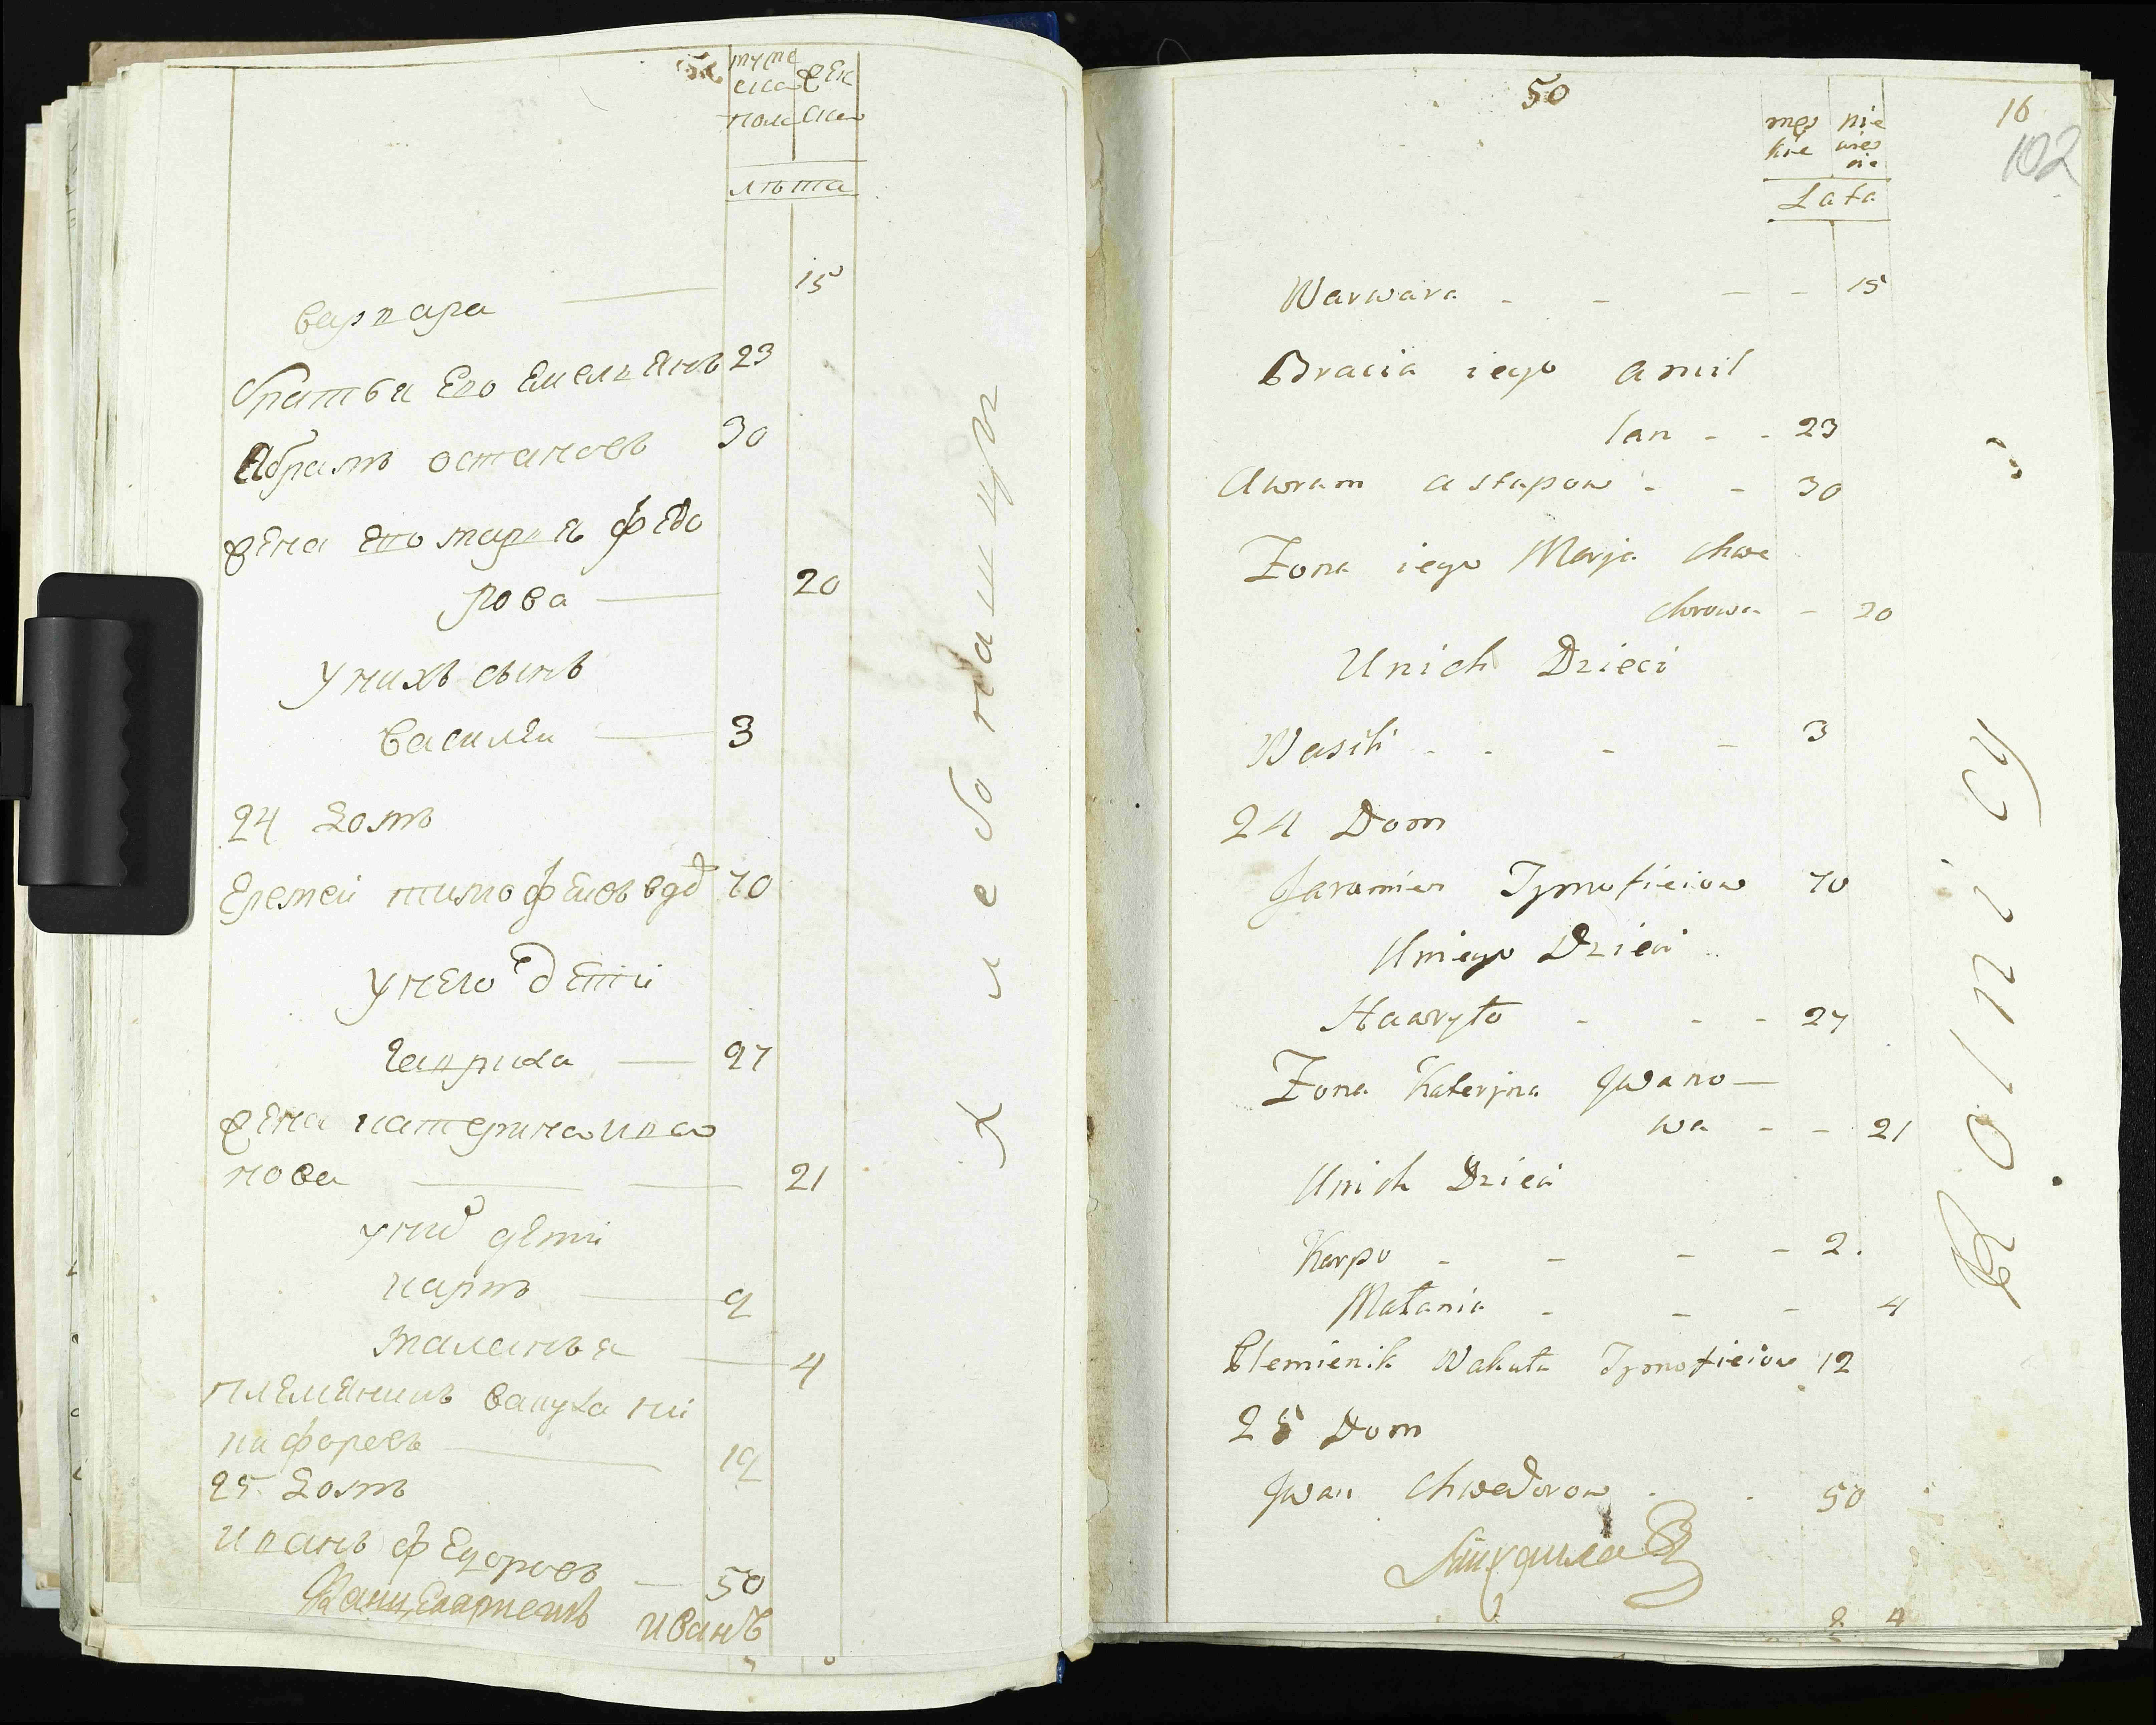 муже
ска
пола
жен
ска
лѣта
варвара 15
братья Его Емельянъ 23
Абрамъ остаповъ 30
жена Его марья федо
рова 20
у нихъ сынъ
Василеи 3
24 Домъ
Еремеи тимофеивъ вдъ 70
у него дети
гаврила 27
жена катерина ива
нова 21
у них дети
карпъ 2
маланья 4
племяникъ вакула ни
кифоровъ 12
25 Домъ
иванъ федоровъ 50
Канцеляристъ иванъ
хлебопашцы
50
16
102
męs
kie
nie
wieś
cie
Lata
Warwara 15
Bracia iego Amil
Ian 23
Awram Astapow 30
Zona iego Marja Chwe
dorowa 20
Unich Dzieci
Wasili 3
24 Dom
Jaramiei Tymofieiow 70
Uniego Dzieci
Hawryło 27
Zona Kateryna Jwano-
wa 21
Unich Dzieci
Karpo 2
Małania 4
Plemienik Wakuła Tymofieiow 12
25 Dom
Jwan Chwedorow 50
8 4
Rolnicy